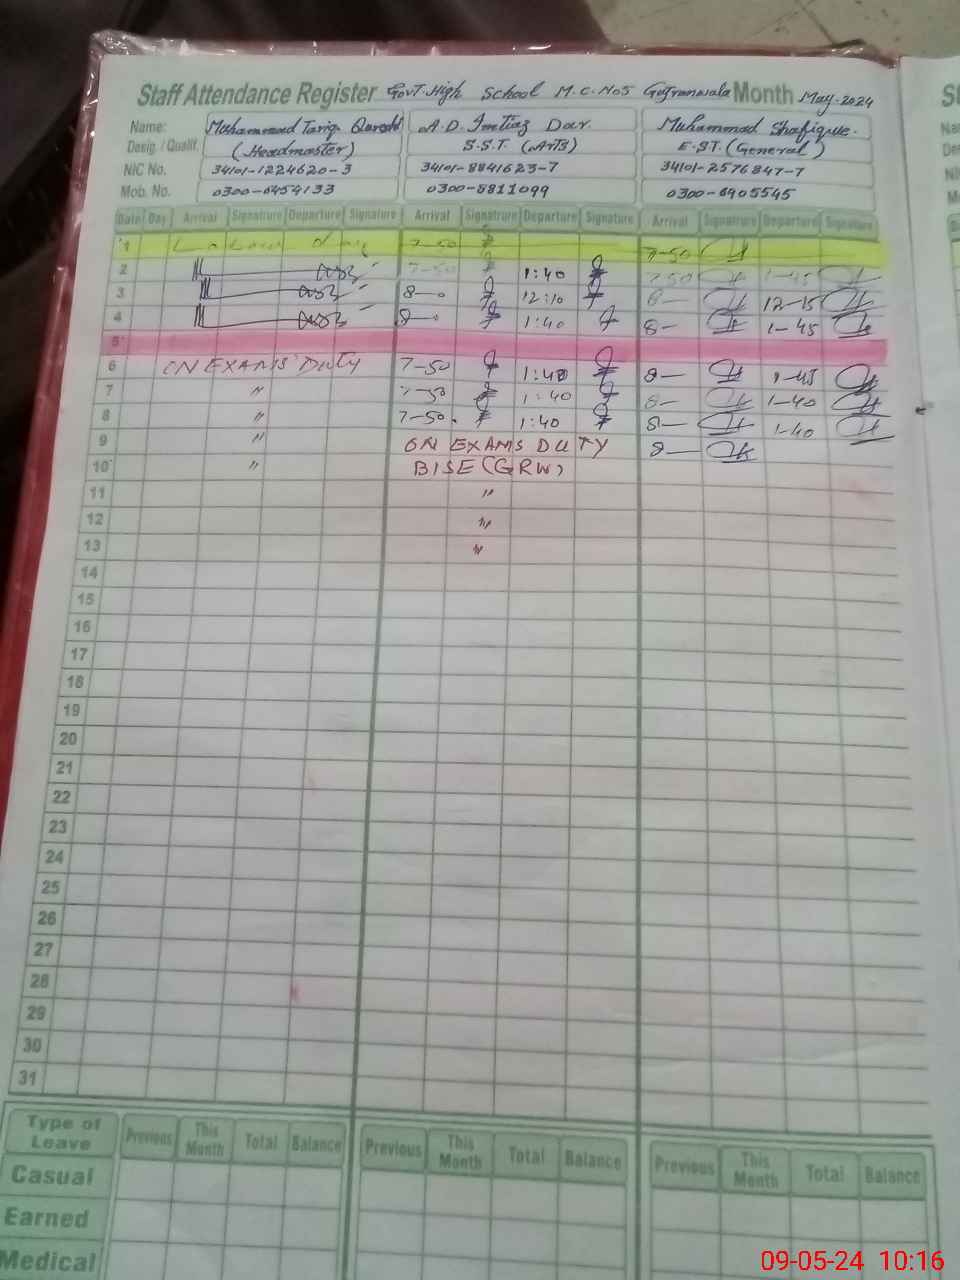 Staff Attendance Register Govt. High School M.C. No5 Gujranwala Month May-2024
Name: Muhammad Tariq Qureshi A.D. Imtiaz Dar. Muhammad Shafique.
Desig. / Qualif. (Headmaster) S.S.T (Arts) E.ST. (General)
NIC No. 34101-1224620-3 34101-8841623-7 34101-2576847-7
Mob. No. 0300-6454133 0300-8811099 0300-6905545
Date Day Arrival Signatrure Departure Signature Arrival Signatrure Departure Signature Arrival Signatrure Departure Signature
1 Labour day 7-50 7-50
2 7-50 1:40 7-50 1-45
3 8- 12:10 8- 12-15
4 8- 1:40 8- 1-45
5
6 ON EXAMS DUTY 7-50 1:40 8- 1-45
7 " 7-50 1:40 8- 1-40
8 " 7-50. 1:40 8- 1-40
9 " ON EXAMS DUTY 8-
10 " BISE (GRW)
11 "
12 "
13 "
14
15
16
17
18
19
20
21
22
23
24
25
26
27
28
29
30
31
Type of Leave Previous This Month Total Balance Previous This Month Total Balance Previous This Month Total Balance
Casual
Earned
Medical
09-05-24 10:16